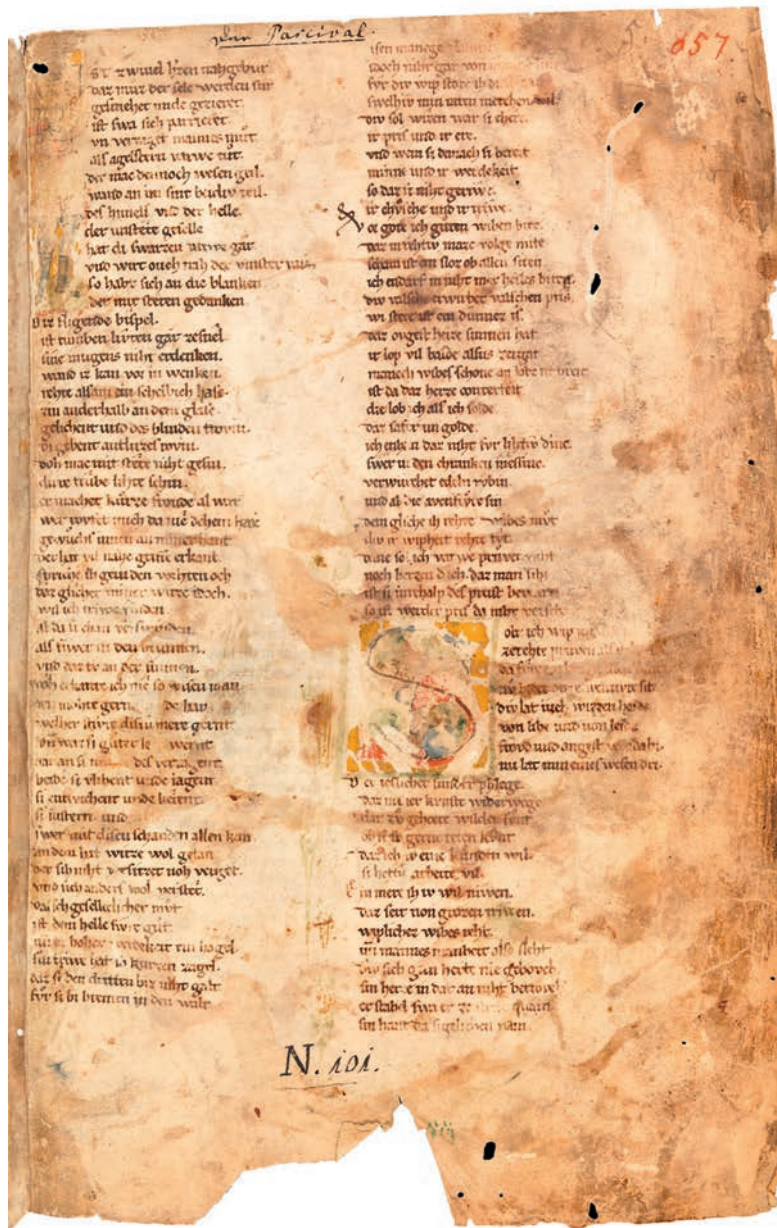 Von Parcival.
057
st zwivel hzen nahgebur
daz muz der sele werden sur
gesmehet unde gezieret
ist swa sich parrieret
vn verzaget mannes mut
als agelstern varwe tut.
der mac dennoch wesen geil.
wand an im sint beidiv teil.
des himels vnd der helle.
der unstete geselle
hat di swarzen varwe gar
vnd wirt ouch nah der vinster var.
so habt sich an die blanken
der mit steten gedanken
Diz fligende bispel.
ist tumben liuten gar zesnel
sine mugens niht erdenken.
wand iz kan vor in wenken.
rehte alsam ein schellich hase.
zin anderhalb an dem glase
gelichent und des blinden troum.
di gebent antluzes roum.
doh mac mit stete niht gesin.
dirre trube lihte schin.
er machet kurze froude al war
wer roufet mich da nie dehein har
gewuchs innen an miner hant
der hat vil nahe griffe erkant.
spriche ih gein den vorhten och
daz glicher miner witze doch.
wil ich triwe vinden.
al da si chan verswinden.
als fiwer in den brunnen.
vnd daz to an der sunnen.
noh erkante ich nie so wisen man
der mohte gern de han
welher stiure disiu mere gernt
vn waz si guter le wernt
dar an si des verzagent.
beide si vlihent unde iagent
si entwichent unde kerent
si lasternt und
swer mit disen schanden allen kan
an dem hat witze wol getan
der sih niht versitzet noh verget.
vnd sich anders wol verstet.
valsch geselleclicher mut
ist dem helle fiwre gut
hoher werdekeit ein hagel.
sin triwe hat so kurzen zagel.
daz si den dritten biz niht galt
fvr si bi bremen in den walt
isen manege
idoch niht gar von
fvr div wip stoze ih di
swelhiv min raten merchen wil.
div sol wizen war si chere.
ir pris und ir ere.
vnd wem si dernach si bereit
minne und ir werdekeit
so daz ir niht geriwe.
ir chvsche und ir triwe.
vor gote ich guten wiben bite.
daz in rehtiv maze volge mite
scham ist ein sloz ob allen siten
ich endarf in niht mer heiles biten.
div valsche erwirbet valschen pris.
wi stete ist ein dunnez is.
daz ovgest heize sunnen hat
ir lop vil balde alsus zergat
manech wibes schone an lobe ist breit
ist da daz herze conterfeit
die lob ich als ich solde
daz safer im golde.
ich enhan daz niht fvr lihtiv dinc.
swer in den chranken messinc.
verwurchet edeln rvbin
und al die aventivre sin
dem gliche ih rehten wibes mvt
div ir wipheit rehte tvt.
dane sol ich varwe prvven niht
noch herzen dach. daz man siht
ist si innrhalp der prust bewart
so ist werder pris da niht versch
olt ich wip
ze rehte prvven als
da fvre
div lat iuch wizzen beide
von libe und von leide
froud und angest vert dabi.
nu lat min eines wesen dri.
der ieslicher sunder pflege
daz mi ier kvnste widerwege
dar zv gehorte wilder funt
ob si iv gerne teten kvnt
daz ich iv eine kunden wil.
si heten arbeite vil.
Ein mere ih iv wil niwen.
daz seit von grozen triwen.
wiplicher wibes reht.
vn mannes manheit also sleht
div sich gein herte nie gebovch
sin herze in dar an niht betrovch
er stahel swa er ze strite quam
sin hant da sigelichen nam
N. 101.